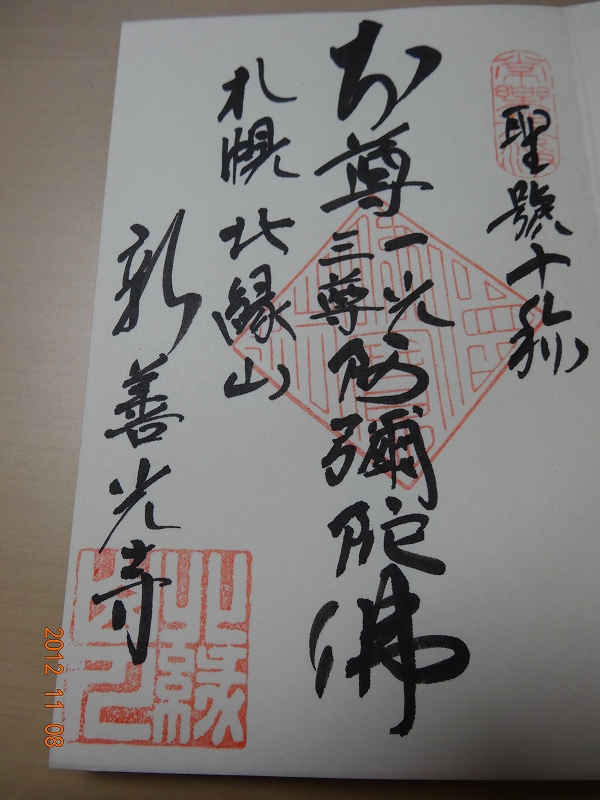 聖號十称
本尊 一光三尊 阿彌陀佛
札幌 北縁山
新善光寺
2012 11 08